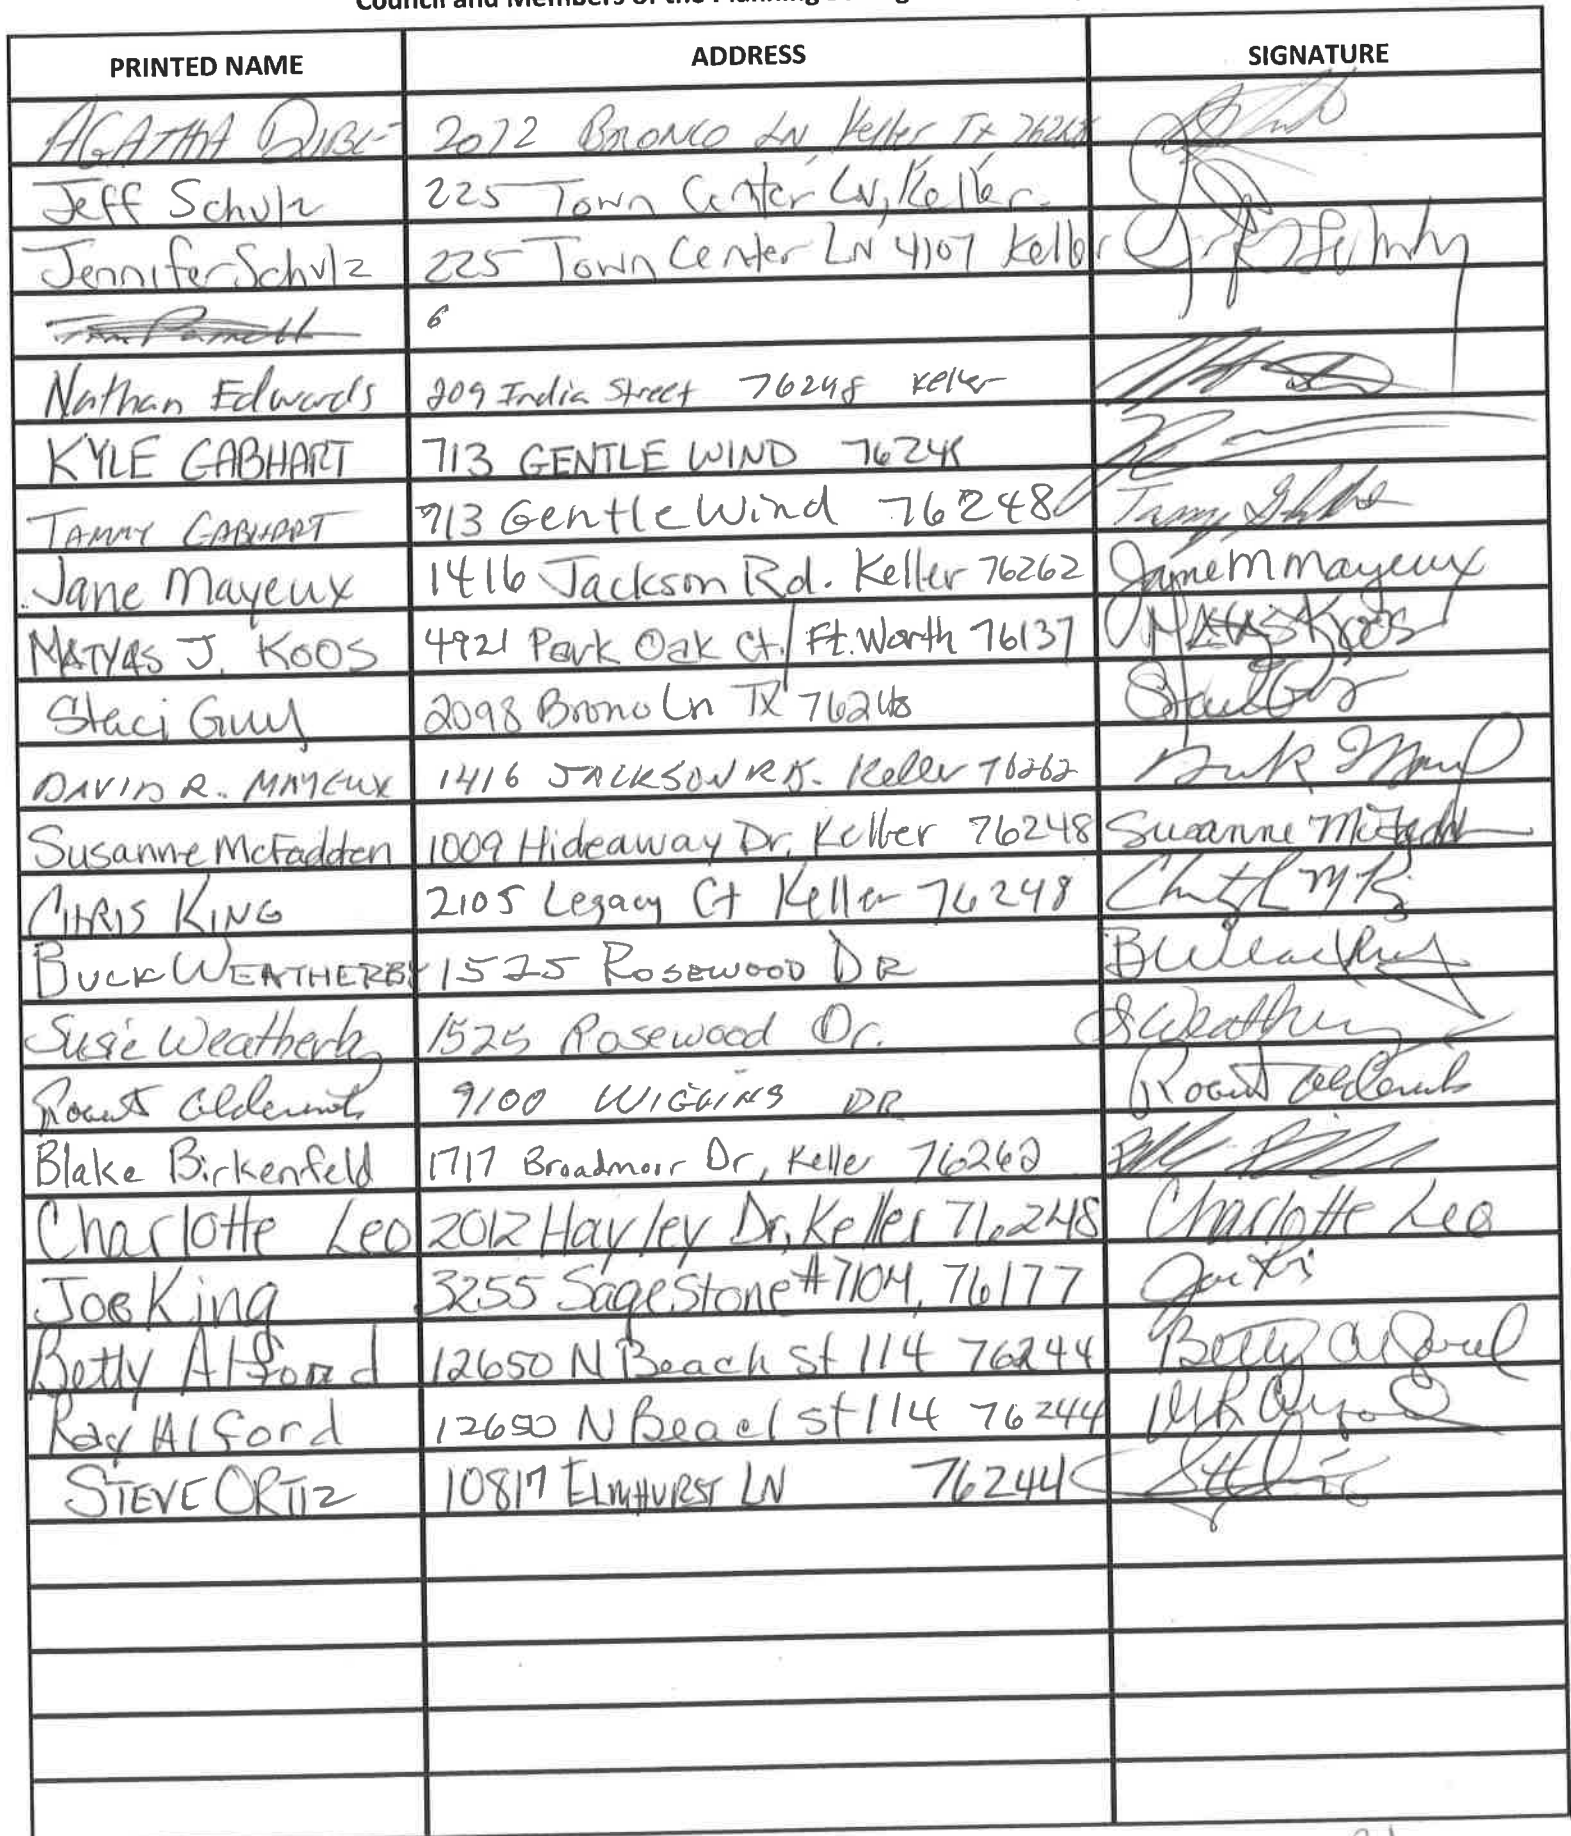 Council and Members of the Planning
PRINTED NAME ADDRESS SIGNATURE
AGATHA 2072 BRONCO LN Keller TX
Jeff Schulz 225 Town Center LN, Keller.
Jennifer Schulz 225 Town Center LN 4107 Keller
6
Nathan Edwards 209 India Street 76248 Keller
KYLE GABHART 713 GENTLE WIND 76248
TAMMY GABHART 713 Gentle Wind 76248 Tammy
Jane Mayeux 1416 Jackson Rd. Keller 76262 Jane M Mayeux
MATYAS J. KOOS 4921 Park Oak Ct. Ft. Worth 76137 Matyas Koos
Staci Guy 2098 Brono Ln TX 76248 Staci Guy
DAVID R. MAYEUX 1416 JACKSON RD. Keller 76262
Susanne McFadden 1009 Hideaway Dr, Keller 76248 Susanne McFadden
CHRIS KING 2105 Legacy Ct Keller 76248
BUCK WEATHERBY 1525 ROSEWOOD DR B Weatherby
Susie Weatherby 1525 Rosewood Dr. S Weatherby
9100 WIGGINS DR
Blake Birkenfeld 1717 Broadmoor Dr, Keller 76262
Charlotte Leo 2012 Hayley Dr, Keller 76248 Charlotte Leo
Joe King 3255 SageStone #7104, 76177
Betty Alford 12650 N Beach St 114 76244 Betty Alford
Ray Alford 12650 N Beach St 114 76244
STEVE ORTIZ 10817 ELMHURST LN 76244